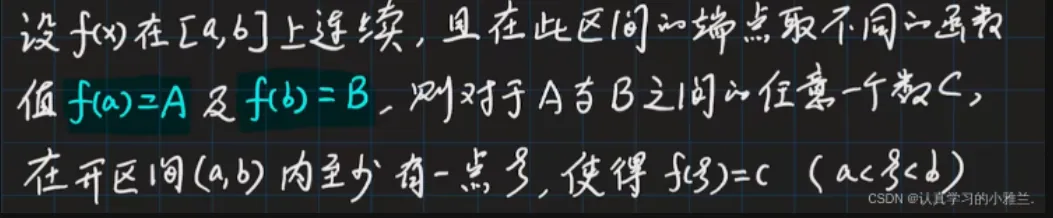 设 f(x) 在 [a,b] 上连续，且在此区间的端点取不同的函数
值 f(a)=A 及 f(b)=B，则对于 A 与 B 之间的任意一个数 C，
在开区间 (a,b) 内至少有一点 ξ，使得 f(ξ)=c （a<ξ<b）
CSDN @认真学习的小雅兰.